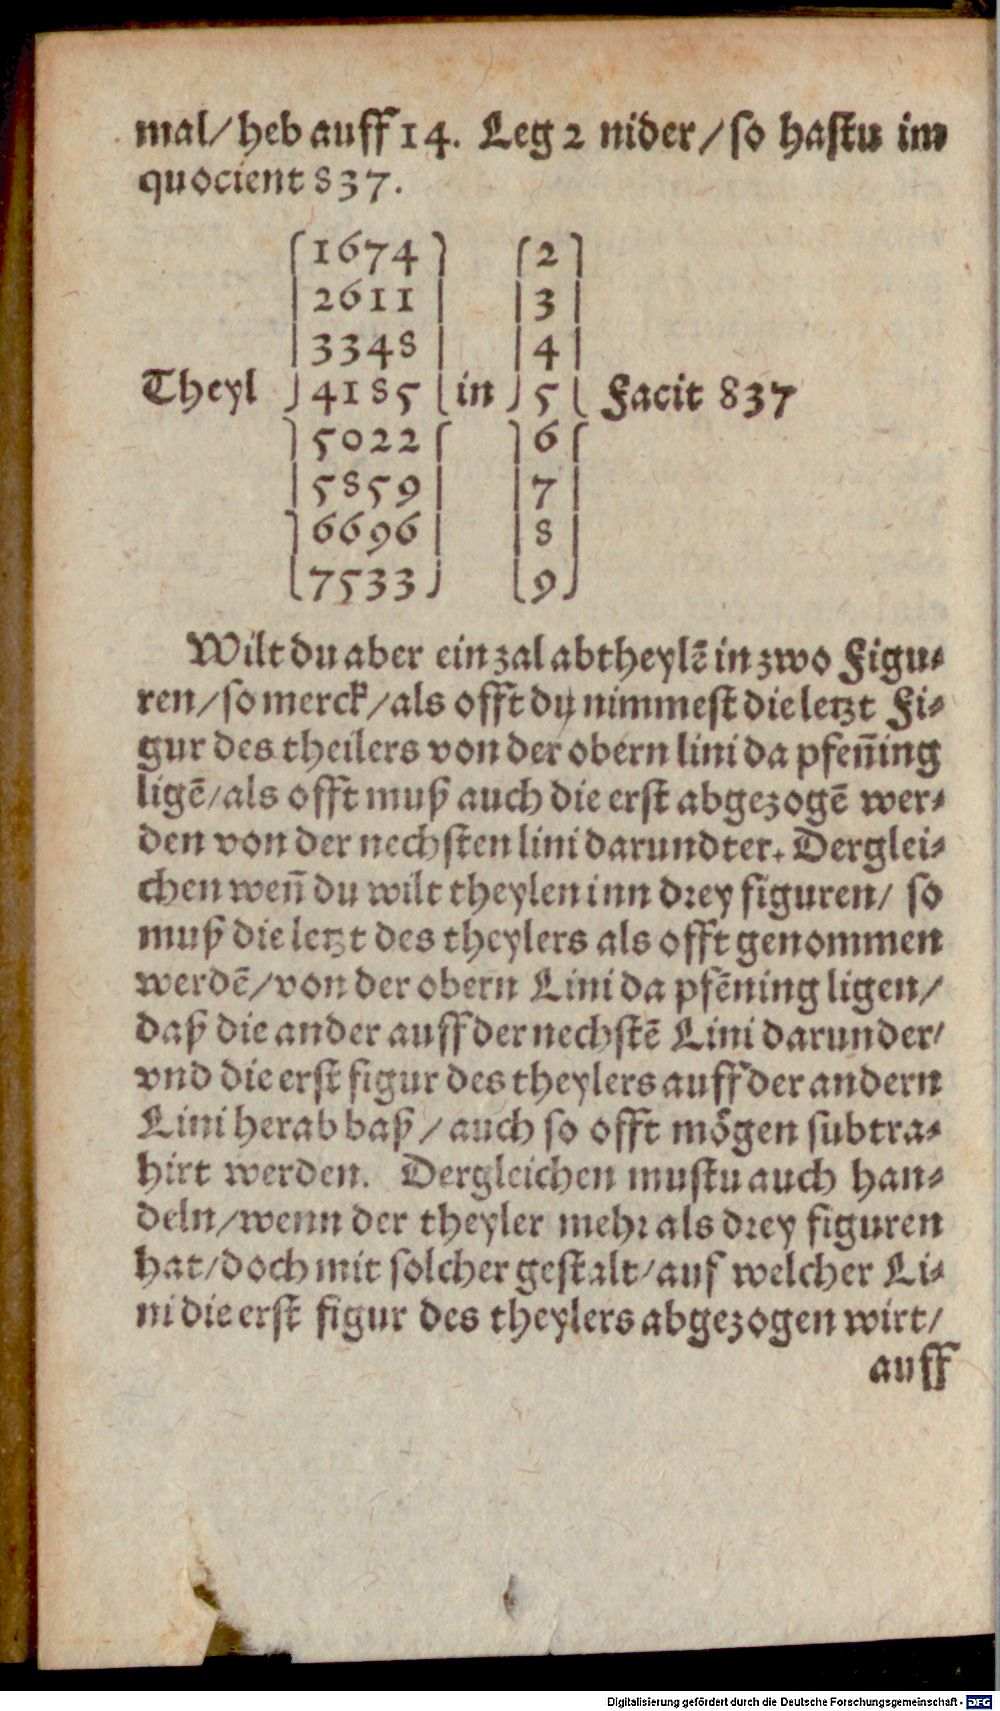 mal/heb auff 14. Leg 2 nider/so hastu im
quocient 837.
1674 2
2611 3
3348 4
Theyl 4185 in 5 Facit 837
5022 6
5859 7
6696 8
7533 9
Wilt du aber ein zal abtheylē in zwo Figu-
ren/so merck/als offt du nimmest die letzt Fi-
gur des theilers von der obern lini da pfen̄ing
ligē/als offt muß auch die erst abgezogē wer-
den von der nechsten lini darundter. Derglei-
chen wen̄ du wilt theylen inn drey figuren/ so
muß die letzt des theylers als offt genommen
werdē/von der obern Lini da pfēning ligen/
daß die ander auff der nechstē Lini darunder/
vnd die erst figur des theylers auff der andern
Lini herab baß/auch so offt mögen subtra-
hirt werden. Dergleichen mustu auch han-
deln/wenn der theyler mehr als drey figuren
hat/doch mit solcher gestalt/auf welcher Li-
ni die erst figur des theylers abgezogen wirt/
auff
Digitalisierung gefördert durch die Deutsche Forschungsgemeinschaft - DFG